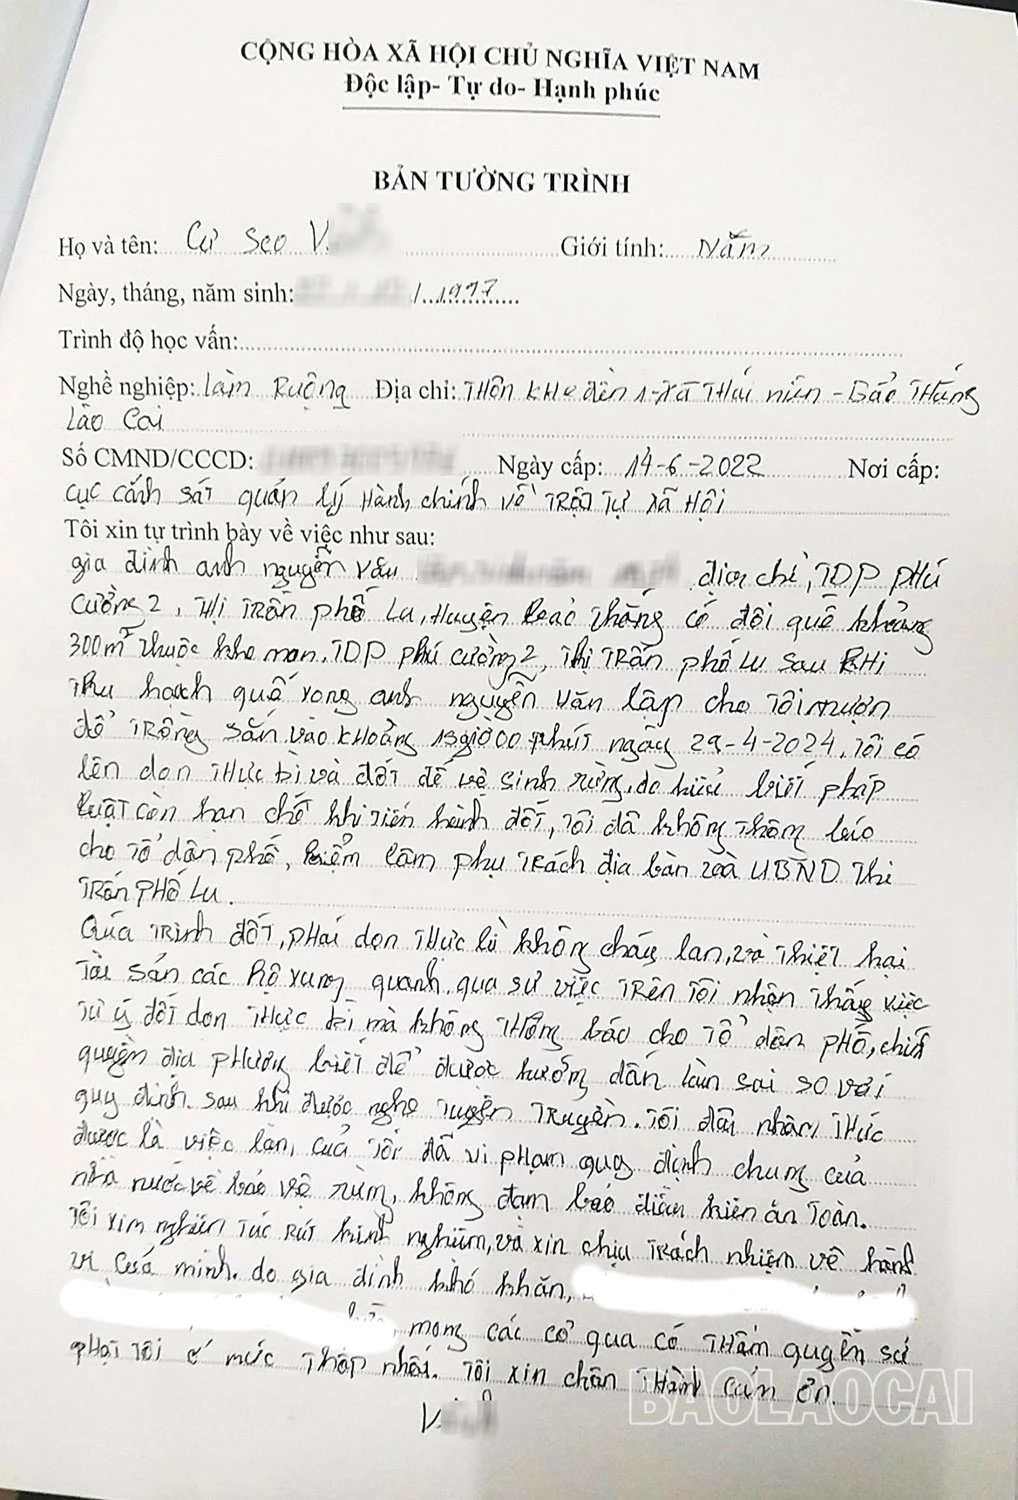 CỘNG HÒA XÃ HỘI CHỦ NGHĨA VIỆT NAM
Độc lập- Tự do- Hạnh phúc
BẢN TƯỜNG TRÌNH
Họ và tên: Cư Seo V. Giới tính: Năm
Ngày, tháng, năm sinh: /.1997
Trình độ học vấn:
Nghề nghiệp: Làm Ruộng Địa chỉ: Thôn Khe đền 1-Xã Thái niên - Bảo Thắng
Lào Cai
Số CMND/CCCD: Ngày cấp: 14-6-2022 Nơi cấp:
cục cảnh sát quản lý Hành chính về Trật Tự Xã Hội
Tôi xin tự trình bày về việc như sau:
gia đình anh nguyễn văn địa chỉ, TDP phú
cường 2, Thị Trấn phố Lu, Huyện Bảo Thắng có đồi quế khoảng
300m² thuộc khe mon. TDP phú cường 2, Thị Trấn phố Lu sau khi
thu hoạch quế xong anh nguyễn văn lập cho tôi mượn
để trồng sắn vào khoảng 13giờ00 phút ngày 29-4-2024. Tôi có
lên dọn thực bì và đốt để vệ sinh rừng, do hiểu biết pháp
luật còn hạn chế khi tiến hành đốt, tôi đã không thông báo
cho tổ dân phố, kiểm lâm phụ trách địa bàn và UBND Thị
Trấn phố Lu.
Qúa trình đốt, phát dọn thực bì không cháy lan, và thiệt hại
tài sản các hộ xung quanh. qua sự việc trên tôi nhận thấy việc
tự ý đốt dọn thực bì mà không thông báo cho tổ dân phố, chính
quyền địa phương biết để được hướng dẫn làm sai so với
quy định. sau khi được nghe tuyên truyền. Tôi đã nhận thức
được là việc làm của tôi đã vi phạm quy định chung của
nhà nước về bảo vệ rừng, không đảm bảo điều kiện an toàn.
Tôi xin nghiêm túc rút kinh nghiệm, và xin chịu trách nhiệm về hành
vi của mình. do gia đình khó khăn,
mong các cơ qua có thẩm quyền sử
phạt tôi ở mức thấp nhất. Tôi xin chân thành cảm ơn.
V
BAOLAOCAI